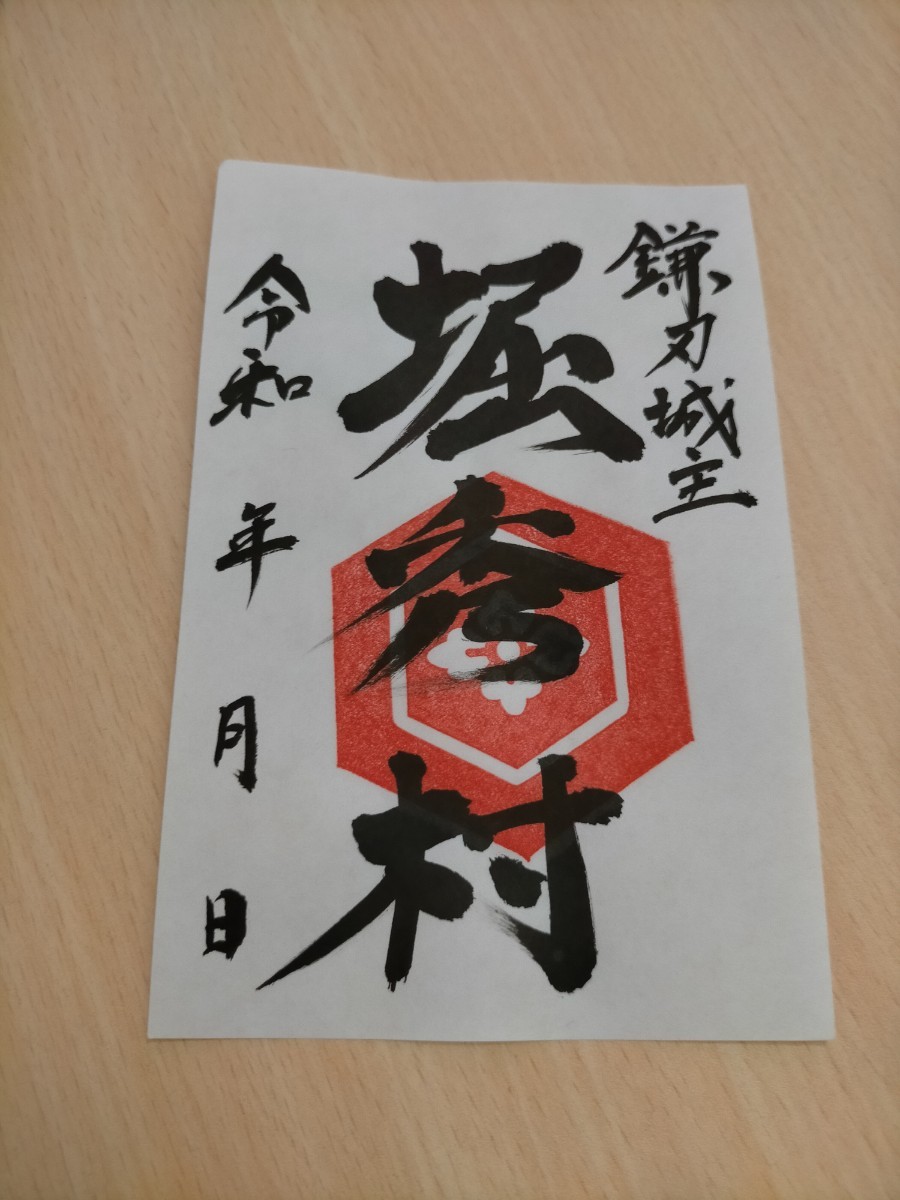 鎌刃城主
堀秀村
令和 年 月 日